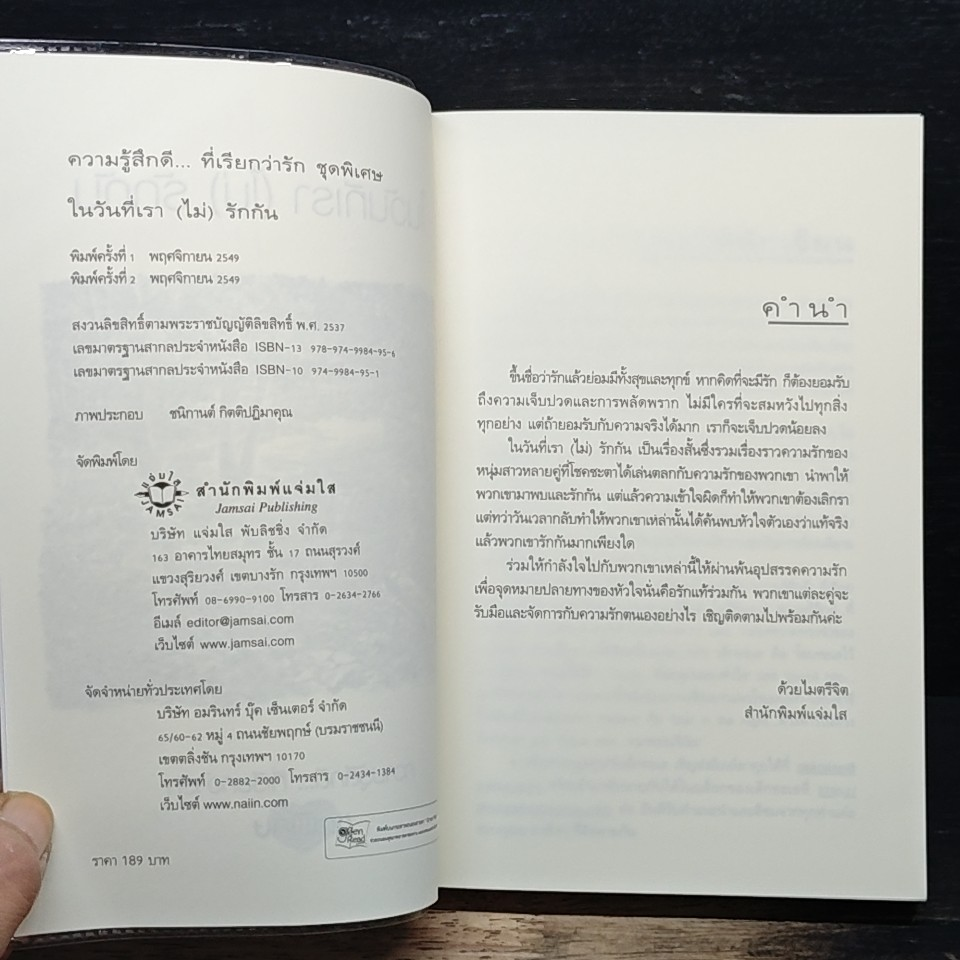 ความรู้สึกดี... ที่เรียกว่ารัก ชุดพิเศษ
ในวันที่เรา (ไม่) รักกัน
พิมพ์ครั้งที่ 1 พฤศจิกายน 2549
พิมพ์ครั้งที่ 2 พฤศจิกายน 2549
สงวนลิขสิทธิ์ตามพระราชบัญญัติลิขสิทธิ์ พ.ศ. 2537
เลขมาตรฐานสากลประจำหนังสือ ISBN-13 978-974-9984-95-6
เลขมาตรฐานสากลประจำหนังสือ ISBN-10 974-9984-95-1
ภาพประกอบ ชนิกานต์ กิตติปฏิมาคุณ
จัดพิมพ์โดย
แจ่มใส
JAMSAI
สำนักพิมพ์แจ่มใส
Jamsai Publishing
บริษัท แจ่มใส พับลิชชิ่ง จำกัด
163 อาคารไทยสมุทร ชั้น 17 ถนนสุรวงศ์
แขวงสุริยวงศ์ เขตบางรัก กรุงเทพฯ 10500
โทรศัพท์ 08-6990-9100 โทรสาร 0-2634-2766
อีเมล์ editor@jamsai.com
เว็บไซต์ www.jamsai.com
จัดจำหน่ายทั่วประเทศโดย
บริษัท อมรินทร์ บุ๊ค เซ็นเตอร์ จำกัด
65/60-62 หมู่ 4 ถนนชัยพฤกษ์ (บรมราชชนนี)
เขตตลิ่งชัน กรุงเทพฯ 10170
โทรศัพท์ 0-2882-2000 โทรสาร 0-2434-1384
เว็บไซต์ www.naiin.com
Green Read
ราคา 189 บาท
คำนำ
ขึ้นชื่อว่ารักแล้วย่อมมีทั้งสุขและทุกข์ หากคิดที่จะมีรัก ก็ต้องยอมรับ
ถึงความเจ็บปวดและการพลัดพราก ไม่มีใครที่จะสมหวังไปทุกสิ่ง
ทุกอย่าง แต่ถ้ายอมรับกับความจริงได้มาก เราก็จะเจ็บปวดน้อยลง
ในวันที่เรา (ไม่) รักกัน เป็นเรื่องสั้นซึ่งรวมเรื่องราวความรักของ
หนุ่มสาวหลายคู่ที่โชคชะตาได้เล่นตลกกับความรักของพวกเขา นำพาให้
พวกเขามาพบและรักกัน แต่แล้วความเข้าใจผิดก็ทำให้พวกเขาต้องเลิกรา
แต่ทว่าวันเวลากลับทำให้พวกเขาเหล่านั้นได้ค้นพบหัวใจตัวเองว่าแท้จริง
แล้วพวกเขารักกันมากเพียงใด
ร่วมให้กำลังใจไปกับพวกเขาเหล่านี้ให้ผ่านพ้นอุปสรรคความรัก
เพื่อจุดหมายปลายทางของหัวใจนั่นคือรักแท้ร่วมกัน พวกเขาแต่ละคู่จะ
รับมือและจัดการกับความรักตนเองอย่างไร เชิญติดตามไปพร้อมกันค่ะ
ด้วยไมตรีจิต
สำนักพิมพ์แจ่มใส